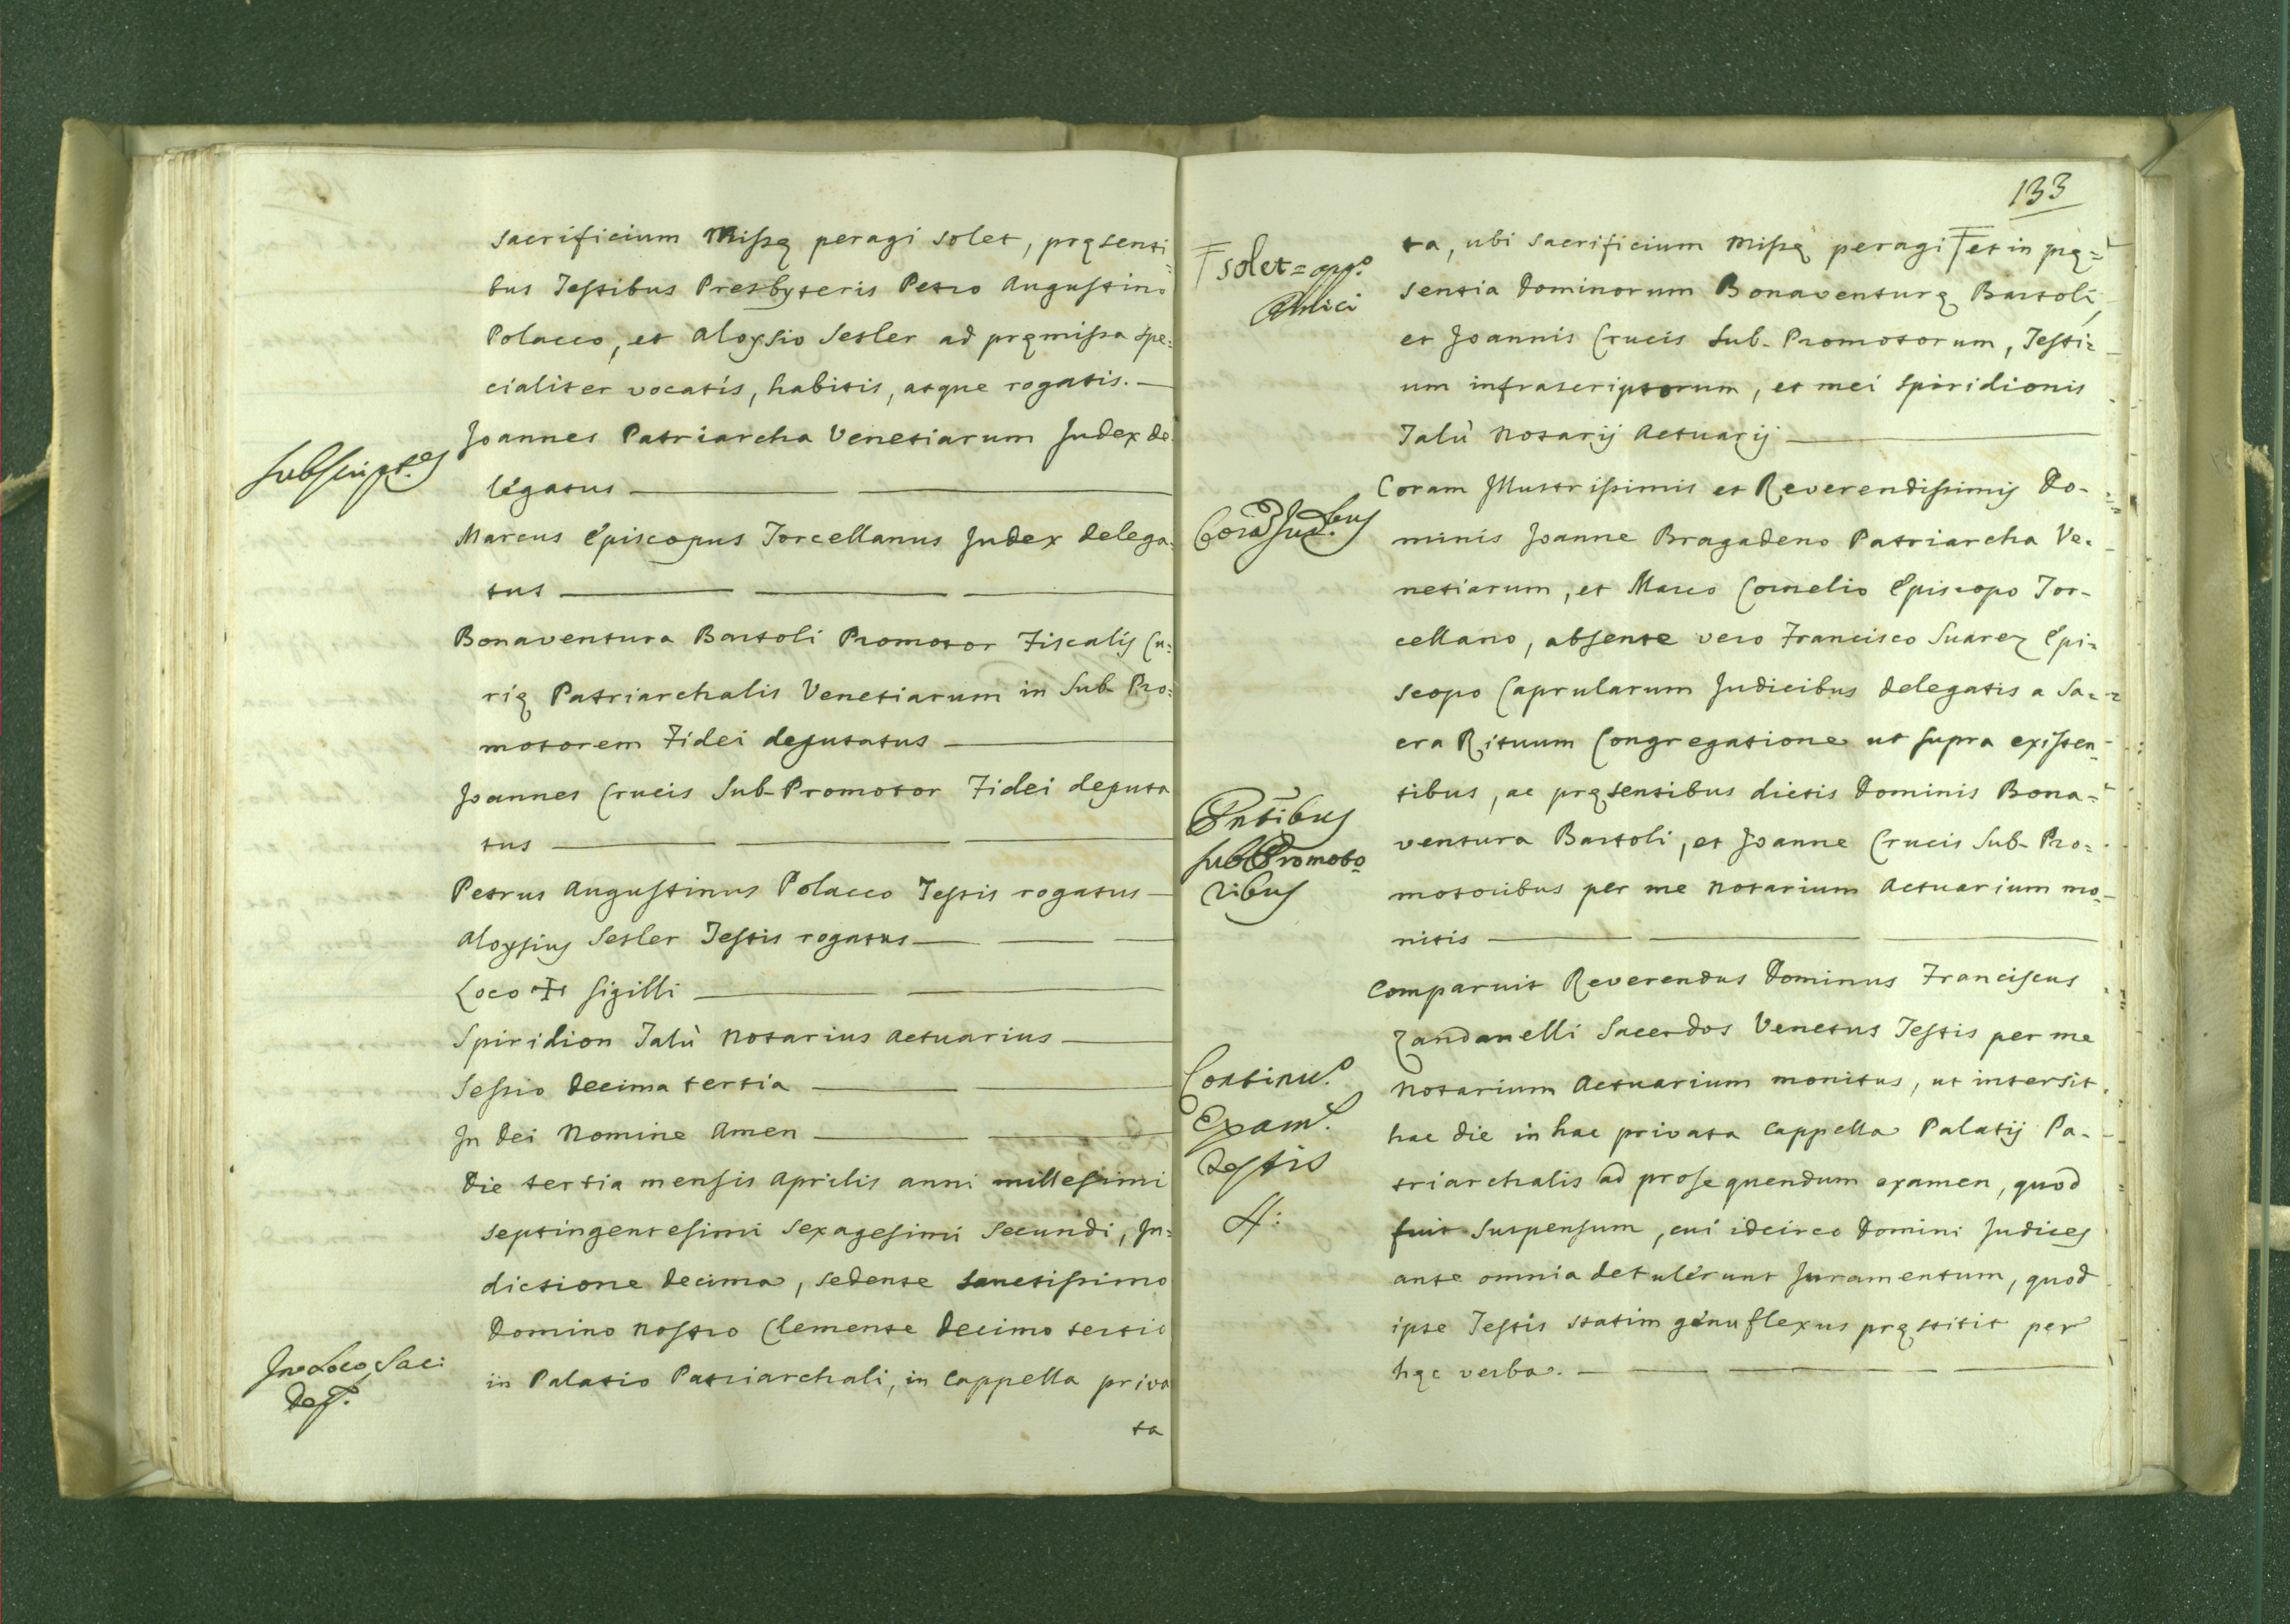 sacrificium Missę peragi solet, pręsenti=
bus Testibus Presbyteris Petro Augustino
Polacco, et Aloysio Setler ad pręmissa spe=
cialiter vocatis, habitis, atque rogatis.
Subscript.es
Joannes Patriarcha Venetiarum Judex de
legatus
Marcus Episcopus Torcellanus Judex delega=
tus
Bonaventura Bartoli Promotor Fiscalis Cu=
rię Patriarchalis Venetiarum in Sub-Pro=
motorem Fidei deputatus
Joannes Crucis Sub-Promotor Fidei deputa
tus
Petrus Augustinus Polacco Testis rogatus
Aloysius Setler Testis rogatus
Loco ✠ Sigilli
Spiridion Talù Notarius Actuarius
Sessio Decima tertia
In Dei Nomine Amen
Die tertia mensis Aprilis anni millesimi
septingentesimi sexagesimi secundi, In=
dictione decima, sedente Sanctissimo
Domino Nostro Clemente Decimo tertio
In Loco Sac:
in Palatio Patriarchali, in Cappella priva
ta
133
solet =
ta, ubi sacrificium Missę peragi et in prę=
sentia Dominorum Bonaventurę Bartoli,
et Joannis Crucis Sub-Promotorum, Testi=
um infrascriptorum, et mei Spiridionis
Talù Notarij Actuarij
Coram Illustrissimis et Reverendissimis Do-
Corā Jud.bus
minis Joanne Bragadeno Patriarcha Ve-
netiarum, et Marco Cornelio Episcopo Tor-
cellano, absente vero Francisco Suarez Epi=
scopo Caprularum Judicibus delegatis a Sa=
cra Rituum Congregatione ut supra existen-
tibus, ac pręsentibus dictis Dominis Bona=
Pn̄tibus
Sub Promoto=
ribus
ventura Bartoli, et Joanne Crucis Sub-Pro=
motoribus per me Notarium Actuarium mo-
nitis
Comparuit Reverendus Dominus Franciscus
Zandanelli Sacerdos Venetus Testis per me
Continu.o
Exam.s
Testis
4:
Notarium Actuarium monitus, ut intersit
hac die in hac privata Cappella Palatij Pa-
triarchalis ad prosequendum examen, quod
fuit suspensum, cui idcirco Domini Judices
ante omnia detulerunt Juramentum, quod
ipse Testis statim genuflexus pręstitit per
hęc verba.